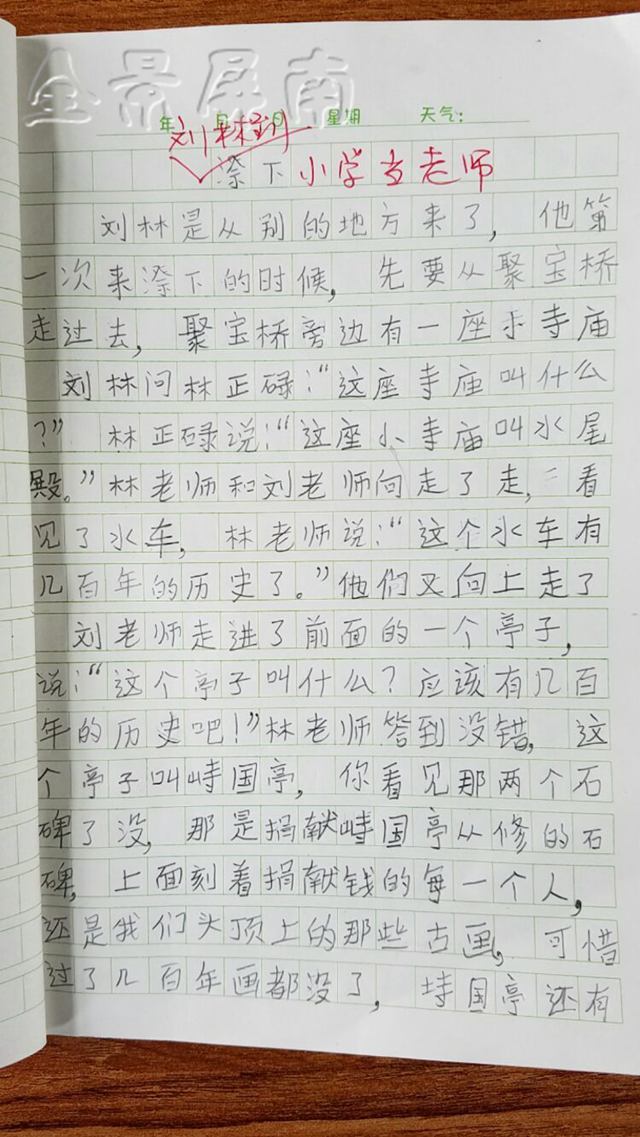 全景屏南
年 月 日 星期 天气:
刘林到
漈下小学当老师
刘林是从别的地方来了，他第
一次来漈下的时候，先要从聚宝桥
走过去，聚宝桥旁边有一座小寺庙
刘林问林正碌：“这座寺庙叫什么
？”林正碌说：“这座小寺庙叫水尾
殿。”林老师和刘老师向走了走，看
见了水车，林老师说：“这个水车有
几百年的历史了。”他们又向上走了
刘老师走进了前面的一个亭子，
说：“这个亭子叫什么？应该有几百
年的历史吧！”林老师答到没错，这
个亭子叫峙国亭，你看见那两个石
碑了没，那是捐献峙国亭从修的石
碑，上面刻着捐献钱的每一个人，
还是我们头顶上的那些古画，可惜
过了几百年画都没了，峙国亭还有